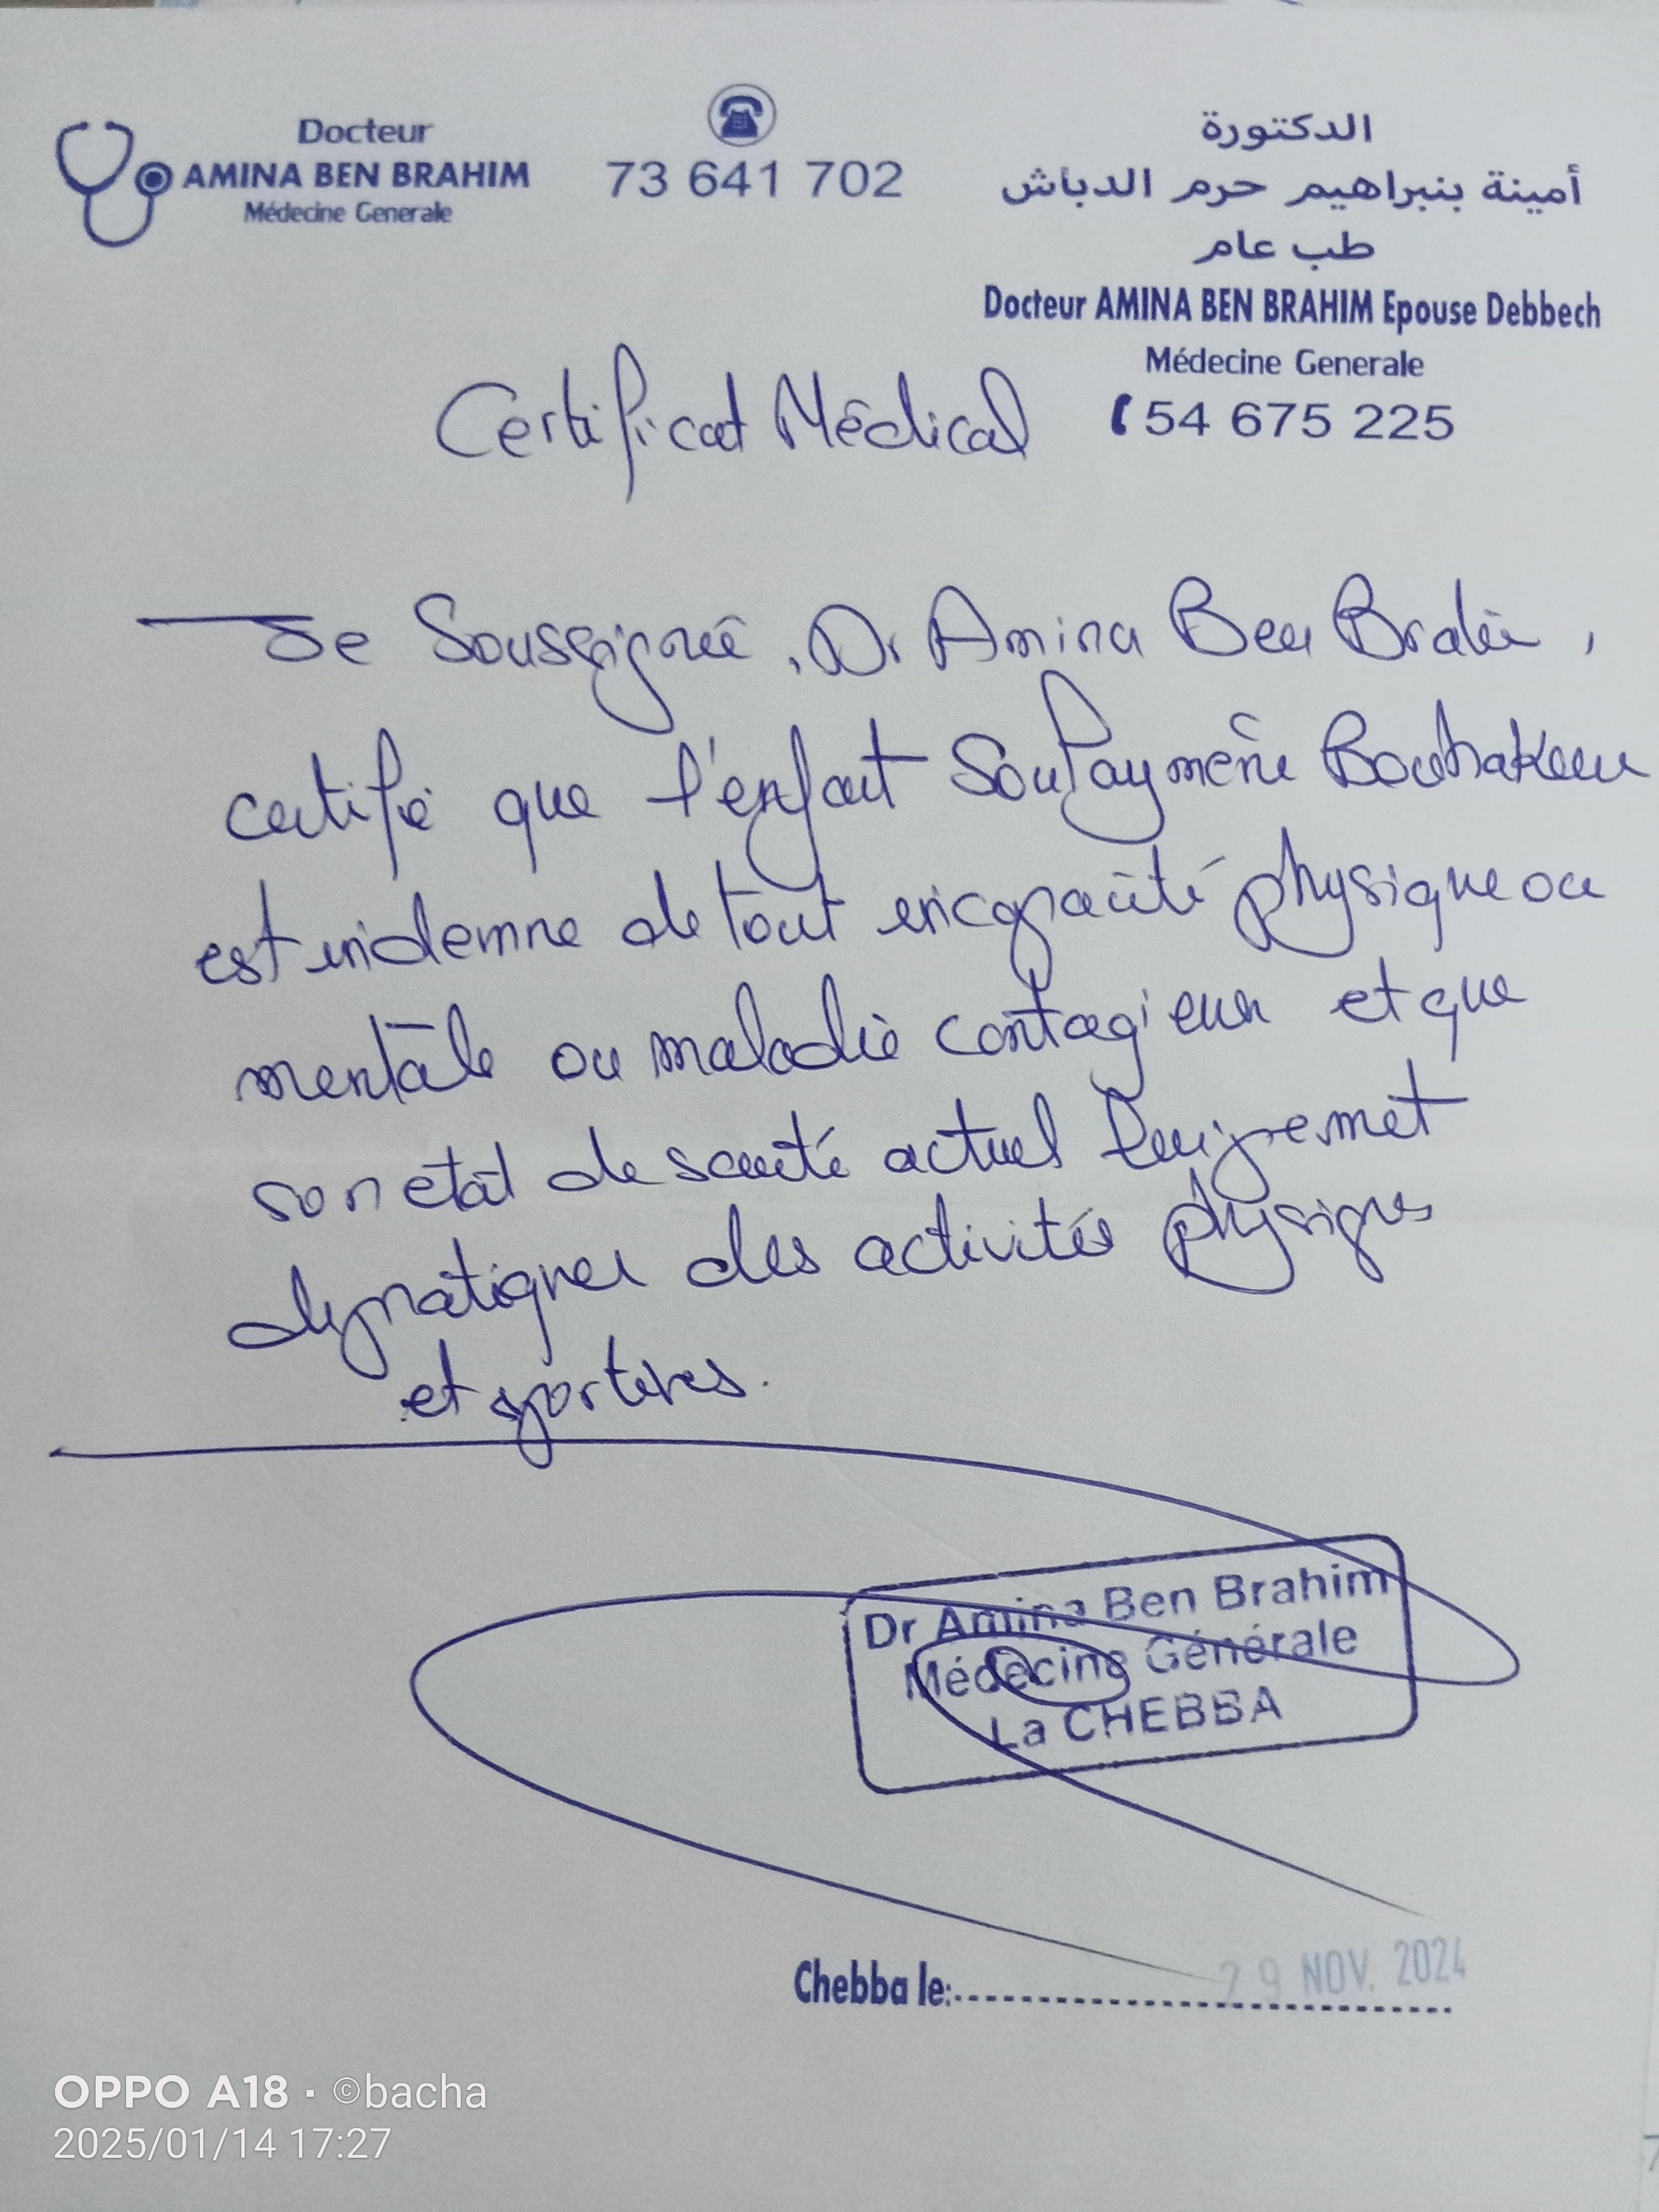 Docteur
AMINA BEN BRAHIM
Médecine Generale
73 641 702
الدكتورة
أمينة بنبراهيم حرم الدباش
طب عام
Docteur AMINA BEN BRAHIM Epouse Debbech
Médecine Generale
54 675 225
Certificat Médical
Je Soussignée, Dr Amina Ben Brahim,
certifie que l'enfant Soulaymene
est indemne de tout incapacité physique ou
mentale ou maladie contagieux et que
son état de santé actuel lui permet
de pratiquer des activités physiques
et sportives.
Dr Amina Ben Brahim
Médecine Générale
La CHEBBA
Chebba le: 29 NOV. 2024
OPPO A18 · ©bacha
2025/01/14 17:27